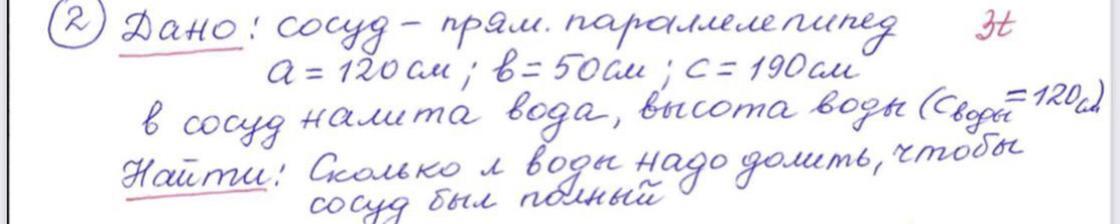 ② Дано: сосуд – прям. параллелепипед 3t
a = 120 см; b = 50 см; c = 190 см
в сосуд налита вода, высота воды (c воды = 120 см)
Найти: Сколько л воды надо долить, чтобы
сосуд был полный